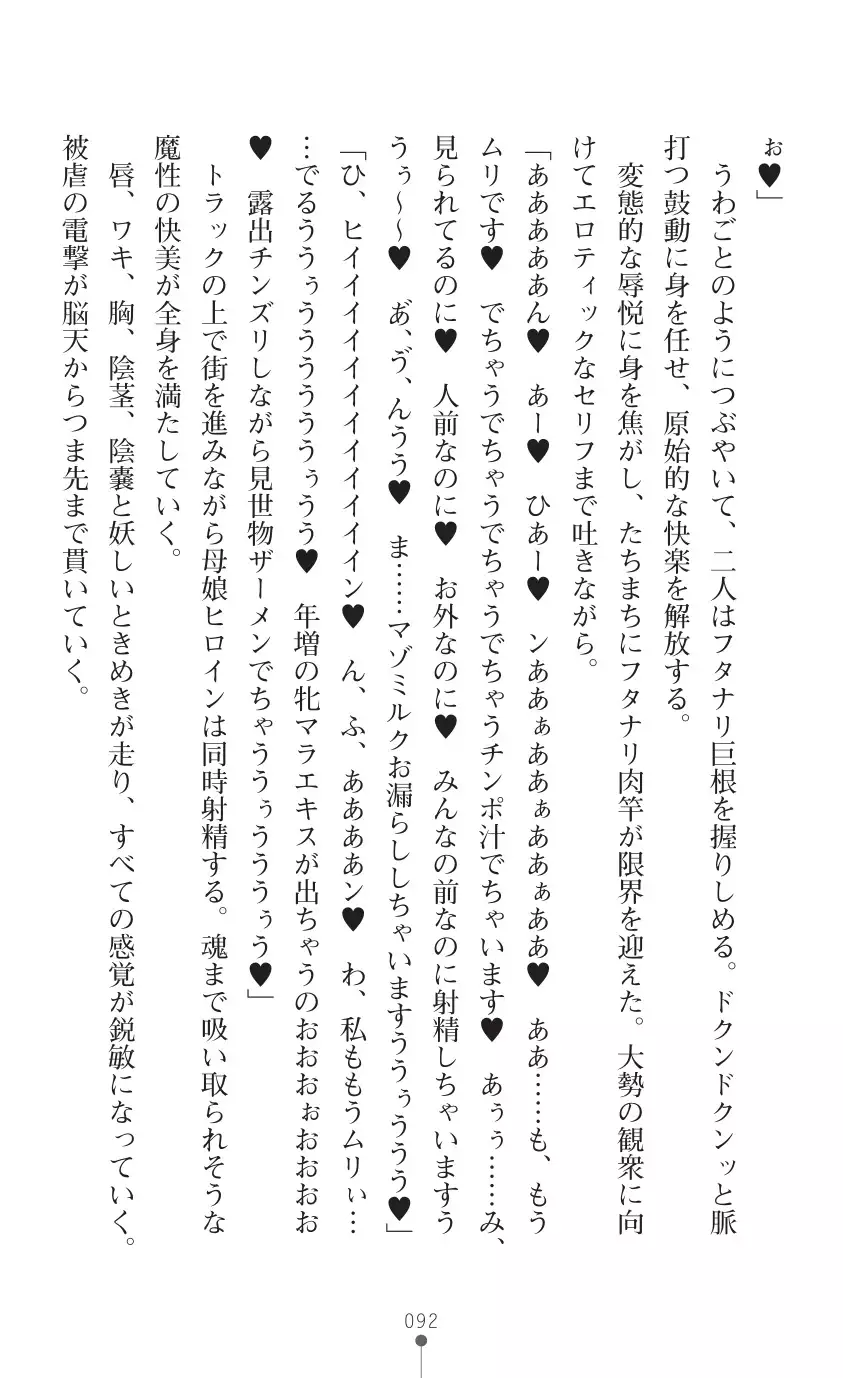 ぉ♥」
うわごとのようにつぶやいて、二人はフタナリ巨根を握りしめる。ドクンドクンッと脈
打つ鼓動に身を任せ、原始的な快楽を解放する。
変態的な辱悦に身を焦がし、たちまちにフタナリ肉竿が限界を迎えた。大勢の観衆に向
けてエロティックなセリフまで吐きながら。
「あああああん♥　あー♥　ひあー♥　ンああぁああぁああぁああ♥　ああ……も、もう
ムリです♥　でちゃうでちゃうでちゃうでちゃうチンポ汁でちゃいます♥　あぅぅ……み、
見られてるのに♥　人前なのに♥　お外なのに♥　みんなの前なのに射精しちゃいますう
うぅ～～♥　あ゛、ゔ、んうう♥　ま……マゾミルクお漏らししちゃいますううぅううう♥」
「ひ、ヒイイイイイイイイイイイン♥　ん、ふ、ああああン♥　わ、私ももうムリぃ…
…でるううぅうううううぅうう♥　年増の牝マラエキスが出ちゃうのおおおぉおおおお
♥　露出チンズリしながら見世物ザーメンでちゃううぅうううぅう♥」
トラックの上で街を進みながら母娘ヒロインは同時射精する。魂まで吸い取られそうな
魔性の快美が全身を満たしていく。
唇、ワキ、胸、陰茎、陰嚢と妖しいときめきが走り、すべての感覚が鋭敏になっていく。
被虐の電撃が脳天からつま先まで貫いていく。
092